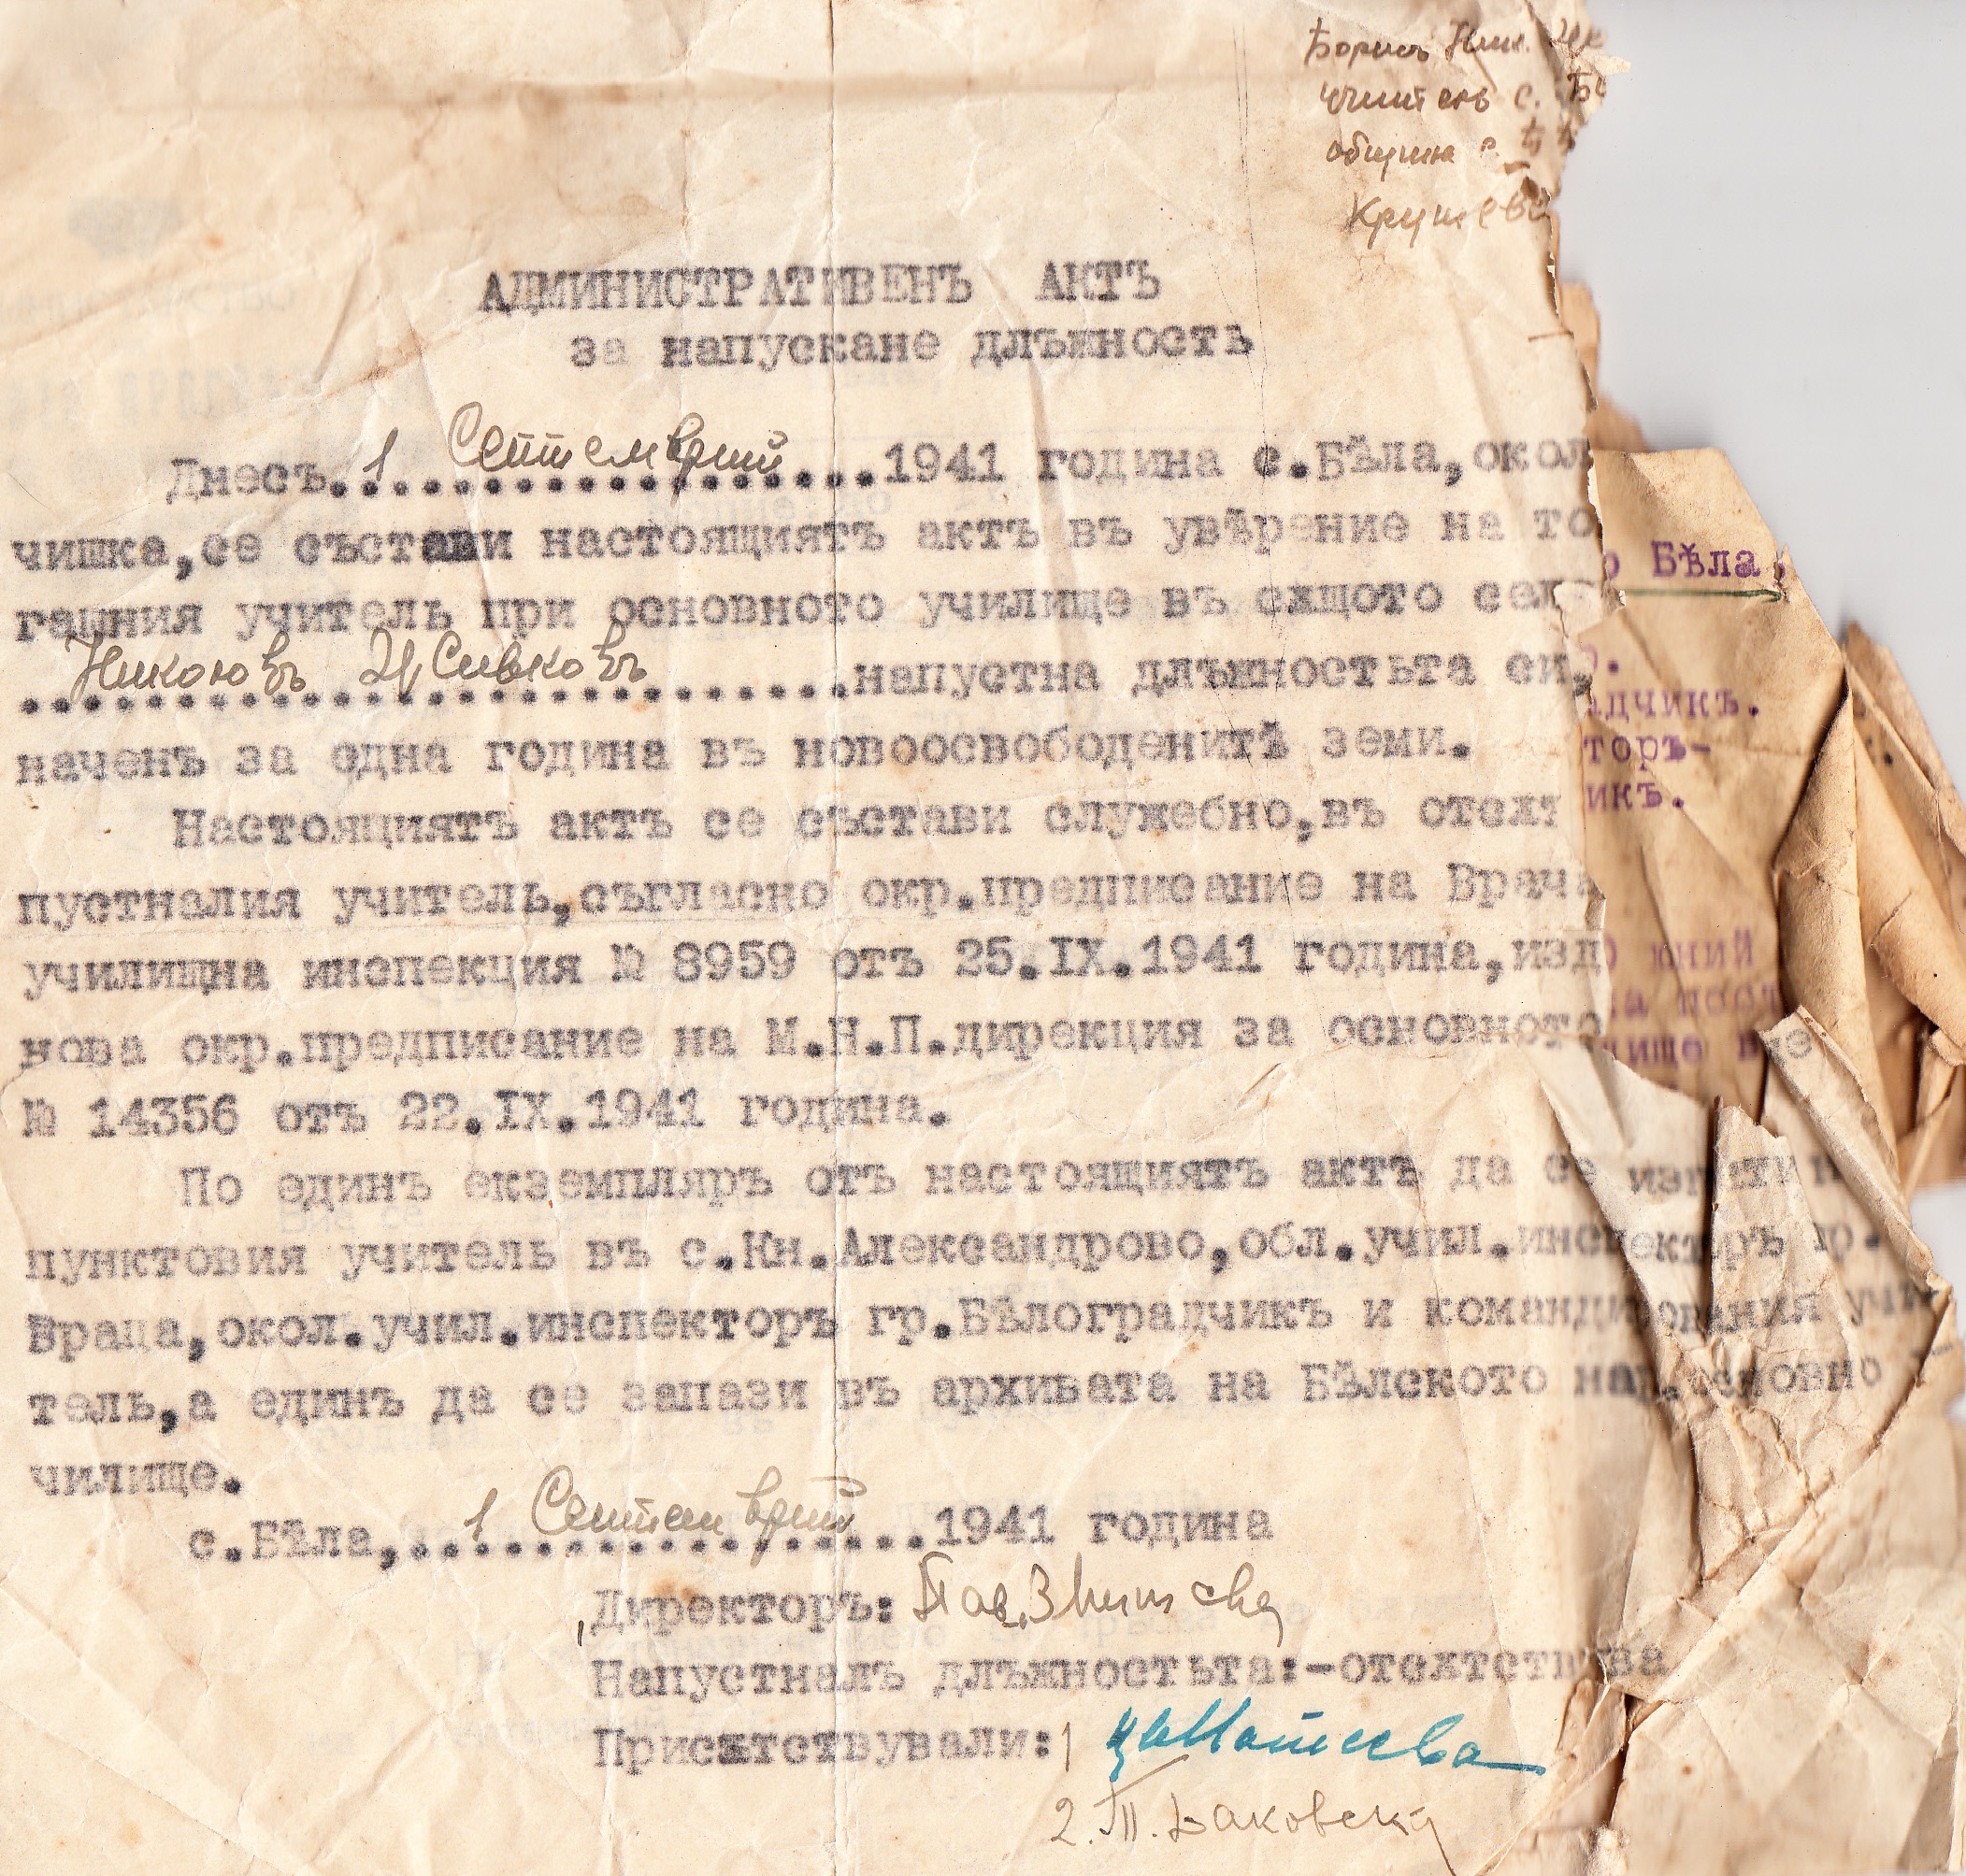 Борисъ Ник.
учитель с.
община с.
АДМИНИСТРАТИВЕНЪ АКТЪ
за напускане длъжность
Днесъ. 1 Септемврий ...1941 година с.Бѣла,окол
чишка,се състави настоящиятъ актъ въ увѣрение на то
гашния учитель при основното училище въ сѫщото сел
Николовъ Ц Сивковъ ........напустна длъжностьта си,
наченъ за една година въ новоосвободенитѣ земи.
Настоящиятъ актъ се състави служебно,въ отсѫт
пустналия учитель,съгласно окр.предписание на Врача
училищна инспекция № 8959 отъ 25.IX.1941 година,изд
нова окр.предписание на М.Н.П.дирекция за основното
№ 14356 отъ 22.IX.1941 година.
По единъ екземпляръ отъ настоящиятъ актъ да се изпрати н
пунктовия учитель въ с.Кн.Александрово,обл.учил.инспекторъ гр.
Враца,окол.учил.инспекторъ гр.Бѣлоградчикъ и командирования учи
тель,а единъ да се запази въ архивата на Бѣлското нар.основно
чилище.
с.Бѣла,.. 1 Септемврий ...1941 година
Директоръ:
Напустналъ длъжностьта:-отсѫтствува
Присѫтствували: 1 Ц Матеева
2. Т. Баковска
Бѣла,
адчикъ.
торъ-
икъ.
юний